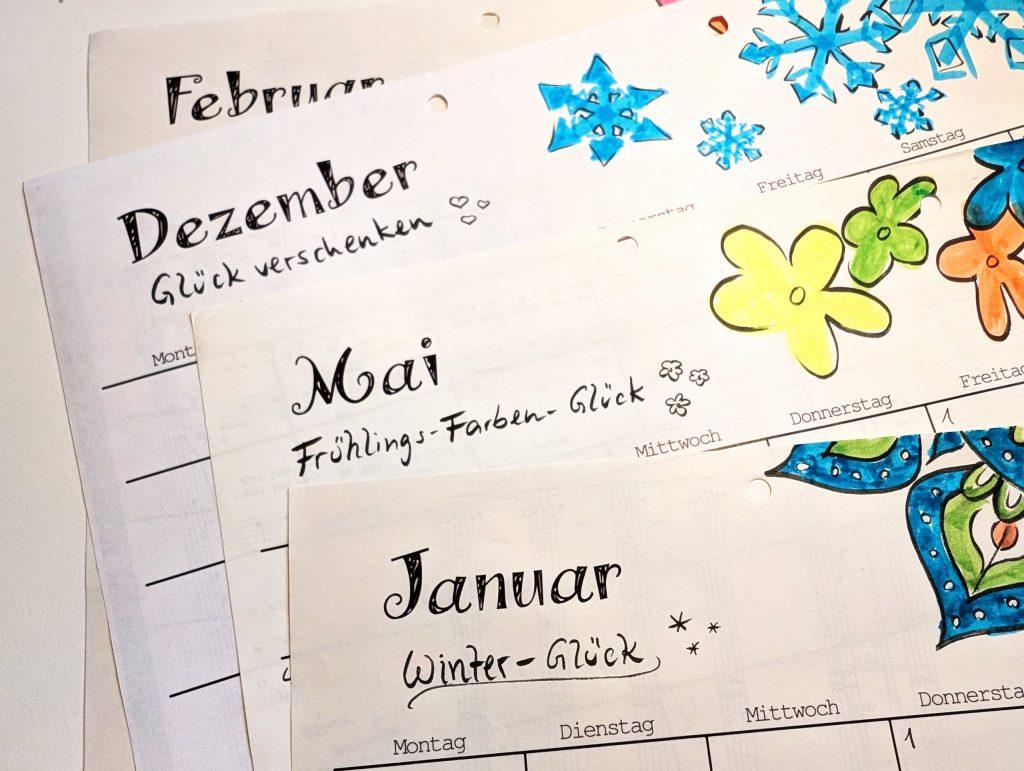 Februar
Dezember
Glück verschenken
Freitag
Samstag
Mai
Frühlings-Farben-Glück
Mittwoch
Donnerstag
Freitag
1
Januar
Winter-Glück
Montag
Dienstag
Mittwoch
Donnersta
1